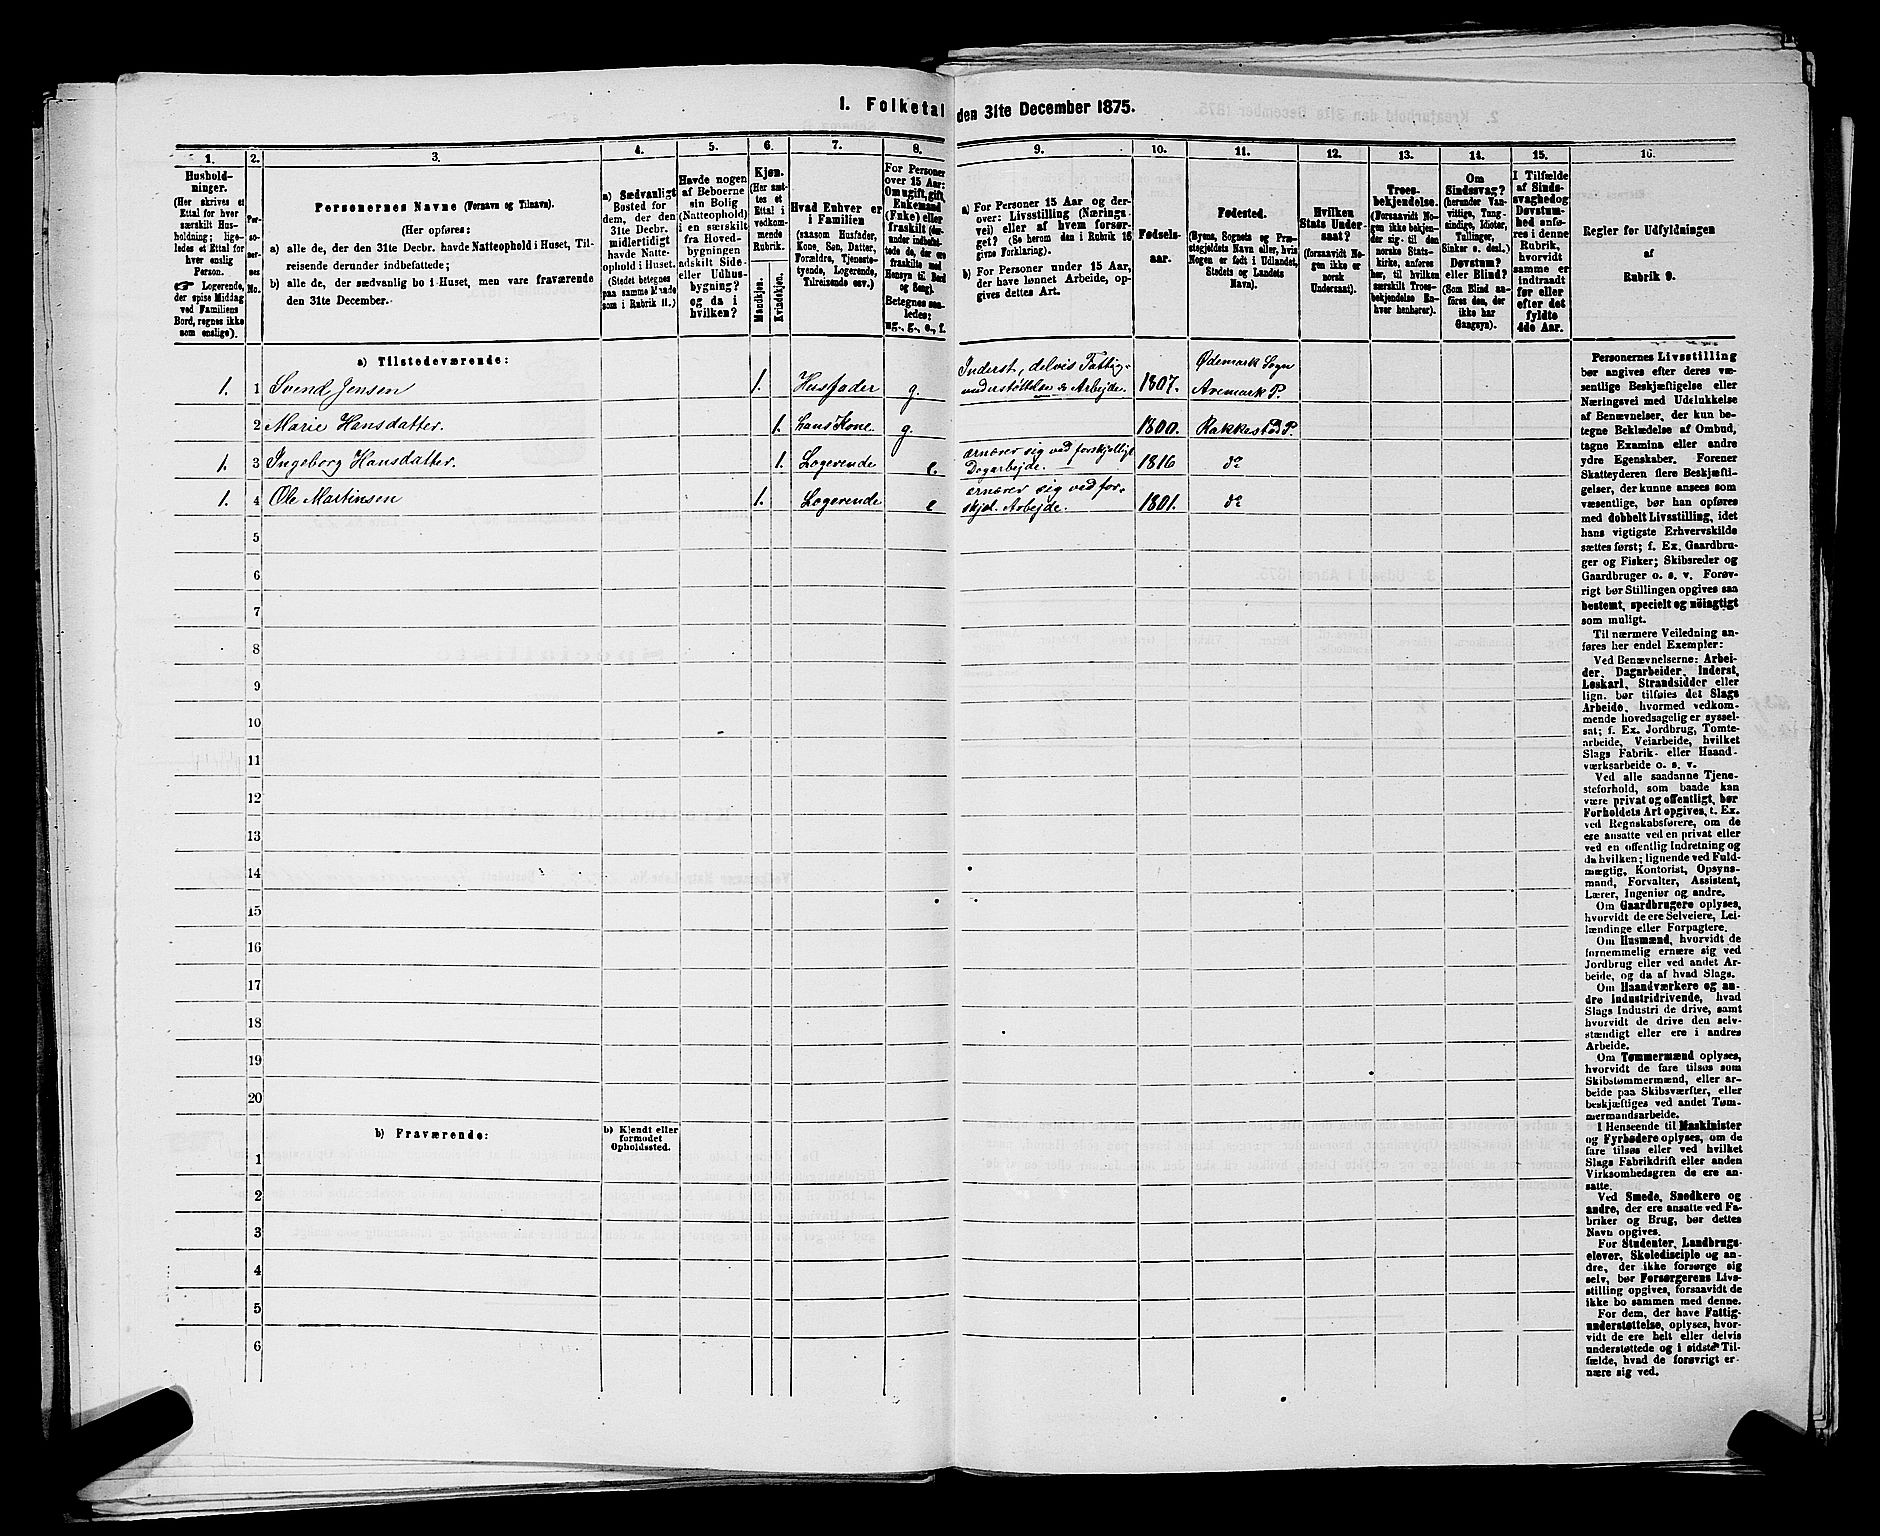 1. Folketal den 31te December 1875.
1.
Hushold-
ninger.
(Her skrives et
Ettal for hver
særskilt Hus-
holdning; lige-
ledes et Ettal for
hver enslig
Person.
Logerende,
der spise Middag
ved Familiens
Bord, regnes ikke
som enslige).
2.
Per-
so-
ner-
nes
No.
3.
Personernes Navne (Fornavn og Tilnavn).
(Her opføres:
a) alle de, der den 31te Decbr. havde Natteophold i Huset, Til-
reisende derunder indbefattede;
b) alle de, der sædvanlig bo i Huset, men vare fraværende
den 31te December.
4.
a) Sædvanligt
Bosted for
dem, der den
31te Decbr.
midlertidigt
havde Natte-
ophold i Huset.
(Stedet betegnes
paa samme Maade
som i Rubrik 11.)
5.
Havde nogen
af Beboerne
sin Bolig
(Natteophold)
i en særskilt
fra Hoved-
bygningen
adskilt Side-
eller Udhus-
bygning?
og da i
hvilken?
6.
Kjøn.
(Her sæt-
tes et
Ettal i
vedkom-
mende
Rubrik.
Mandkjøn.
Kvindekjøn.
7.
Hvad Enhver er
i Familien
(saasom Husfader,
Kone, Søn, Datter,
Forældre, Tjeneste-
tyende, Logerende,
Tilreisende osv.)
8.
For Personer
over 15 Aar:
Om ugift, gift,
Enkemand
(Enke) eller
fraskilt (der-
under indbefat-
tede de, der ere
fraskilte med
Hensyn til Bord
og Seng).
Betegnes saa-
ledes:
ug., g., e., f.
9.
a) For Personer 15 Aar og der-
over: Livsstilling (Nærings-
vei) eller af hvem forsør-
get? (Se herom den i Rubrik 16
givne Forklaring).
b) For Personer under 15 Aar,
der have lønnet Arbeide, op-
gives dettes Art.
10.
Fødsels-
aar.
11.
Fødested.
(Byens, Sognets og Præ-
stegjeldets Navn eller, hvis
Nogen er født i Udlandet,
Stedets og Landets
Navn).
12.
Hvilken
Stats Under-
saat?
(forsaavidt No-
gen ikke er
norsk
Undersaat).
13.
Troes-
bekjendelse.
(Forsaavidt No-
gen ikke bekjen-
der sig til den
norske Stats-
kirke, anføres
her, til hvilken
særskilt Troes-
bekjendelse En-
hver henhører).
14.
Om
Sindssvag?
(herunder Van-
vittige, Tung-
sindige, Idioter,
Tullinger,
Sinker o. desl.)
Døvstum?
eller Blind?
(Som Blind an-
føres den, der
ikke har
Gangsyn).
15.
I Tilfælde
af Sinds-
svaghed og
Døvstum-
hed anfø-
res i denne
Rubrik,
hvorvidt
samme er
indtraadt
før eller
efter det
fyldte
4de Aar.
16.
Regler for Udfyldningen
af
Rubrik 9.
a) Tilstedeværende:
1. 1 Svend Jensen 1. Husfader g. Inderst, delvis Fattig-
understøttelse & Arbejde. 1807. Ødemark Sogn
Aremark P.
2 Marie Hansdatter. 1. hans Kone g. 1800. Rakkestad P.
1. 3 Ingeborg Hansdatter. 1. Logerende e. ernærer sig ved forskjellige
Dagarbejde. 1816 do
1. 4 Ole Martinsen 1. Logerende e ernærer sig ved for-
skjel. Arbejde. 1801. do
5
6
7
8
9
10
11
12
13
14
15
16
17
18
19
20
b) Fraværende:
b) Kjendt eller
formodet
Opholdssted.
1
2
3
4
5
6
Personernes Livsstilling
bør angives efter deres væ-
sentlige Beskjæftigelse eller
Næringsvei med Udelukkelse
af Benævnelser, der kun be-
tegne Beklædelse af Ombud,
tagne Examina eller andre
ydre Egenskaber. Forener
Skatteyderen flere Beskjæfti-
gelser, der kunne ansees som
væsentlige, bør han opføres
med dobbelt Livsstilling, idet
hans vigtigste Erhvervskilde
sættes først; f. Ex. Gaardbru-
ger og Fisker; Skibsreder og
Gaardbruger o. s. v. Forøv-
rigt bør Stillingen opgives saa
bestemt, specielt og nöiagtigt
som muligt.
Til nærmere Veiledning an-
føres her endel Exempler:
Ved Benævnelserne: Arbei-
der, Dagarbeider, Inderst,
Løskarl, Strandsidder eller
lign. bør tilføies det Slags
Arbeide, hvormed vedkom-
mende hovedsagelig er syssel-
sat; f. Ex. Jordbrug, Tomte-
arbeide, Veiarbeide, hvilket
Slags Fabrik- eller Haand-
værksarbeide o. s. v.
Ved alle saadanne Tjene-
steforhold, som baade kan
være privat og offentligt, bør
Forholdets Art opgives, t. Ex.
ved Regnskabsførere, om de
ere ansatte ved en privat eller
ved en offentlig Indretning og
da hvilken; lignende ved Fuld-
mægtig, Kontorist, Opsyns-
mand, Forvalter, Assistent,
Lærer, Ingeniør og andre.
Om Gaardbrugere oplyses,
hvorvidt de ere Selveiere, Lei-
lændinge eller Forpagtere.
Om Husmænd, hvorvidt de
fornemmelig ernære sig ved
Jordbrug eller ved andet Ar-
beide, og da af hvad Slags.
Om Haandværkere og an-
dre Industridrivende, hvad
Slags Industri de drive, samt
hvorvidt de drive den selv-
stændigt eller ere i andres
Arbeide.
Om Tømmermænd oplyses,
hvorvidt de fare tilsøs som
Skibstømmermænd, eller ar-
beide paa Skibsværfter, eller
beskjæftiges ved andet Tøm-
mermandsarbeide.
I Henseende til Maskinister
og Fyrbødere oplyses, om de
fare tilsøs eller ved hvilket
Slags Fabrikdrift eller anden
Virksomhedsgren de ere an-
satte.
Ved Smede, Snedkere og
andre, der ere ansatte ved Fa-
briker og Brug, bør dettes
Navn opgives.
For Studenter, Landbrugs-
elever, Skoledisciple og an-
dre, der ikke forsørge sig
selv, bør Forsørgerens Livs-
stilling opgives, forsaavidt de
ikke bo sammen med denne.
For dem, der have Fattig-
understøttelse, oplyses, hvor-
vidt de ere helt eller delvis
understøttede og i sidste Til-
fælde, hvad de forøvrigt er-
nære sig ved.